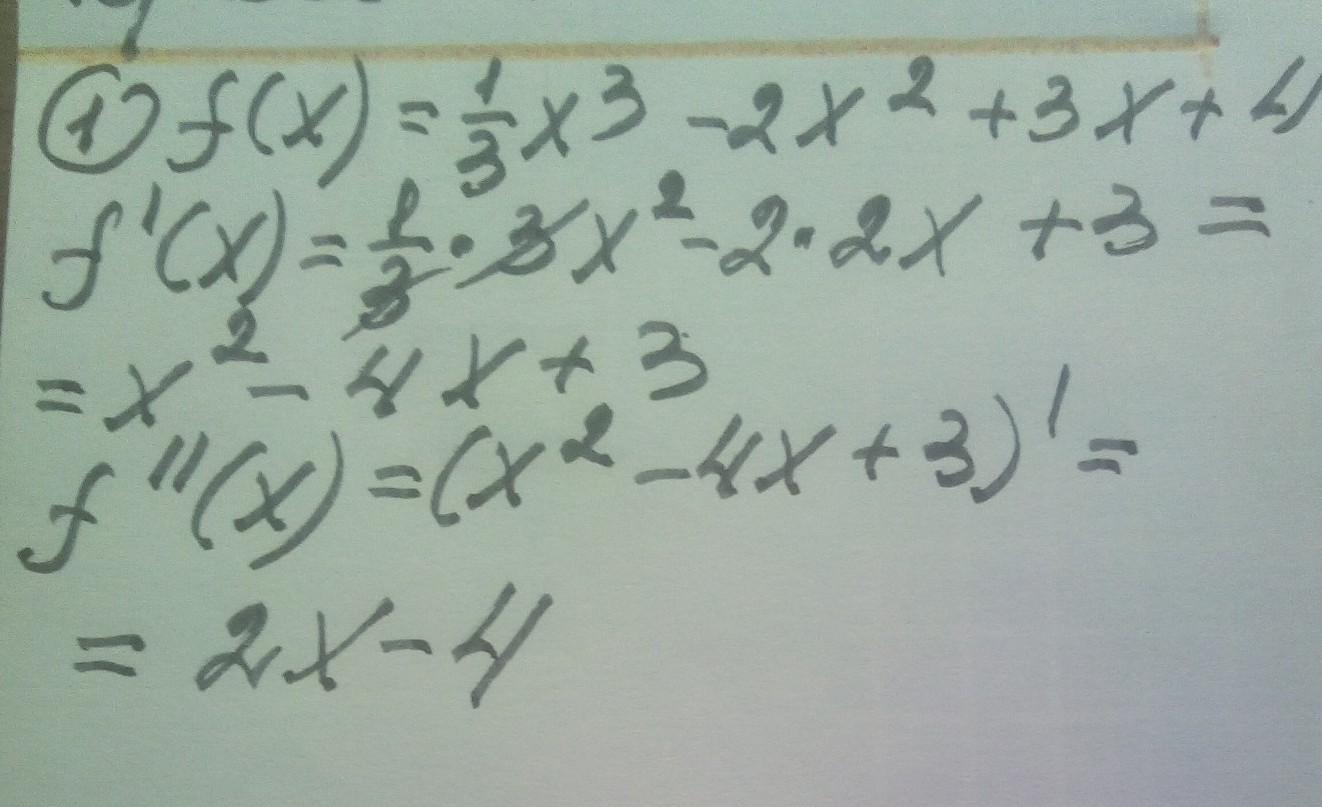 ① f(x) = 1/3 x³ - 2x² + 3x + 4
f'(x) = 1/3 · 3x² - 2 · 2x + 3 =
= x² - 4x + 3
f''(x) = (x² - 4x + 3)' =
= 2x - 4